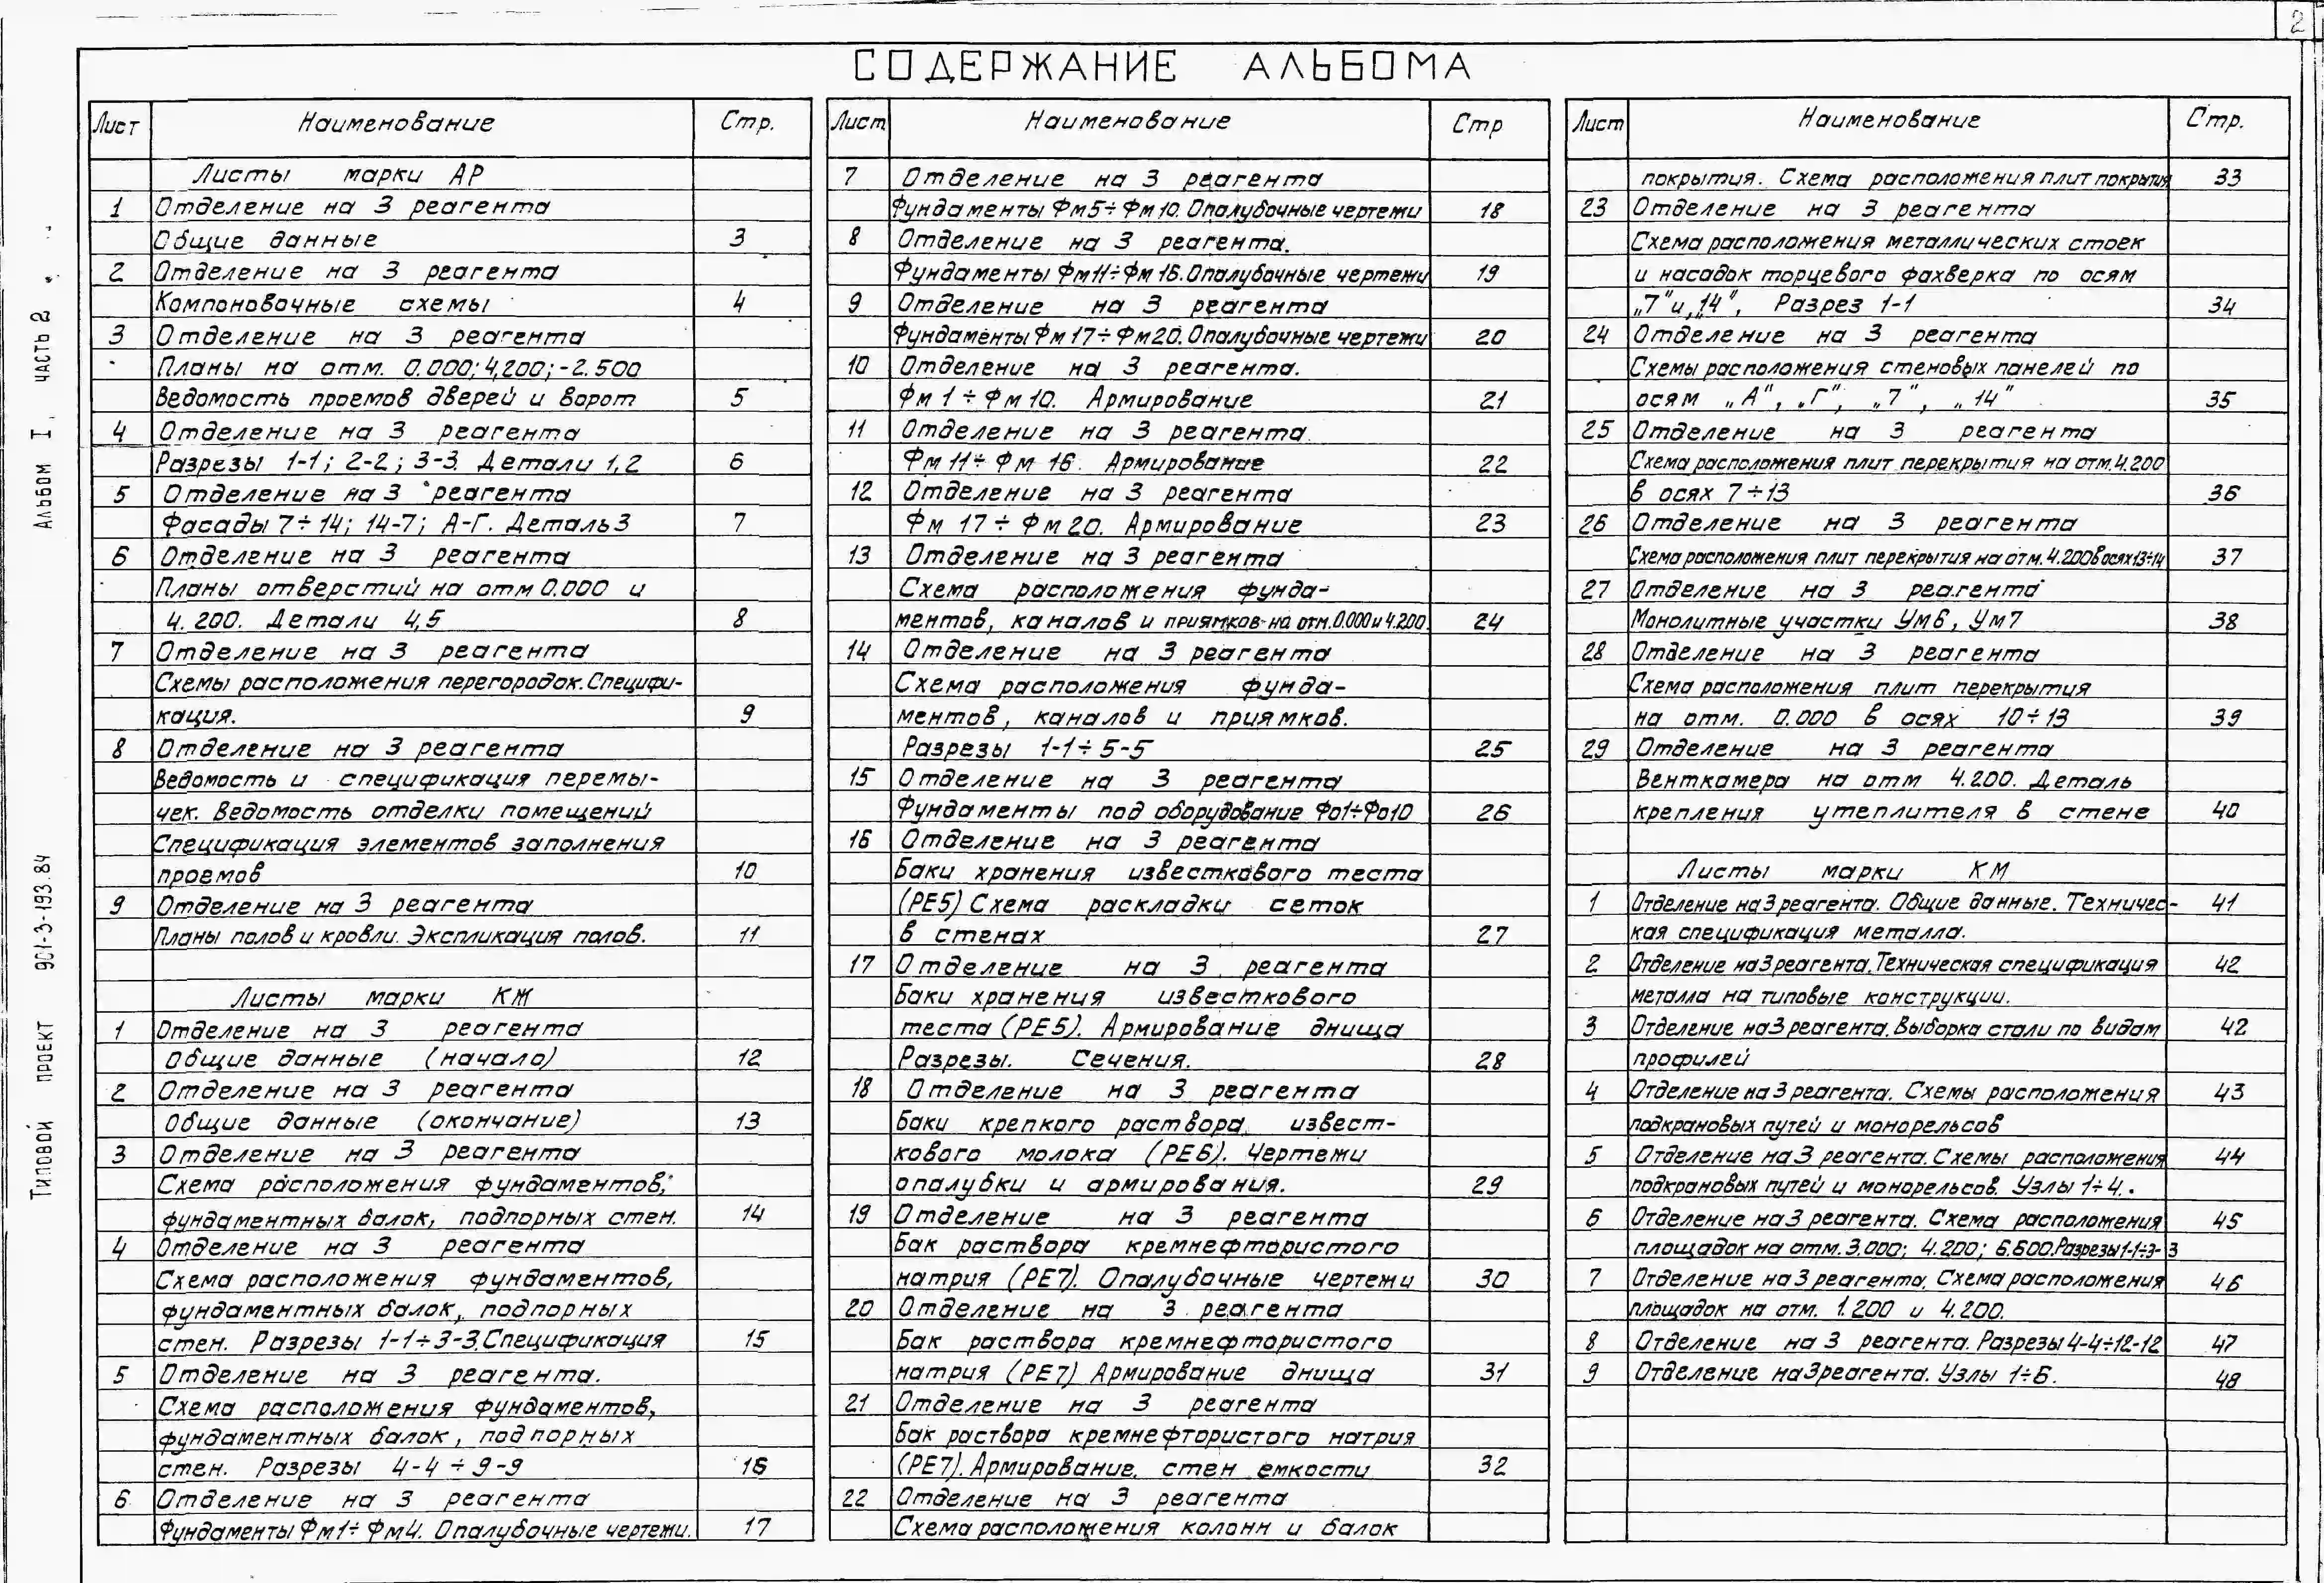 2
СОДЕРЖАНИЕ АЛЬБОМА
Типовой проект 901-3-193.84 Альбом I, часть 2
Лист Наименование Стр.
Листы марки АР
1 Отделение на 3 реагента
Общие данные 3
2 Отделение на 3 реагента
Компоновочные схемы 4
3 Отделение на 3 реагента
Планы на отм. 0.000; 4,200; -2.500
Ведомость проемов дверей и ворот 5
4 Отделение на 3 реагента
Разрезы 1-1; 2-2; 3-3. Детали 1,2 6
5 Отделение на 3 реагента
Фасады 7÷14; 14-7; А-Г. Деталь 3 7
6 Отделение на 3 реагента
Планы отверстий на отм 0.000 и
4.200. Детали 4,5 8
7 Отделение на 3 реагента
Схемы расположения перегородок. Специфи-
кация. 9
8 Отделение на 3 реагента
Ведомость и спецификация перемы-
чек. Ведомость отделки помещений
Спецификация элементов заполнения
проемов 10
9 Отделение на 3 реагента
Планы полов и кровли. Экспликация полов. 11
Листы марки КЖ
1 Отделение на 3 реагента
Общие данные (начало) 12
2 Отделение на 3 реагента
Общие данные (окончание) 13
3 Отделение на 3 реагента
Схема расположения фундаментов,
фундаментных балок, подпорных стен. 14
4 Отделение на 3 реагента
Схема расположения фундаментов,
фундаментных балок, подпорных
стен. Разрезы 1-1÷3-3. Спецификация 15
5 Отделение на 3 реагента.
Схема расположения фундаментов,
фундаментных балок, подпорных
стен. Разрезы 4-4÷9-9 16
6 Отделение на 3 реагента
Фундаменты Фм1÷Фм4. Опалубочные чертежи. 17
Лист Наименование Стр
7 Отделение на 3 реагента
Фундаменты Фм5÷Фм10. Опалубочные чертежи 18
8 Отделение на 3 реагента.
Фундаменты Фм11÷Фм16. Опалубочные чертежи 19
9 Отделение на 3 реагента
Фундаменты Фм17÷Фм20. Опалубочные чертежи 20
10 Отделение на 3 реагента.
Фм1÷Фм10. Армирование 21
11 Отделение на 3 реагента.
Фм11÷Фм16. Армирование 22
12 Отделение на 3 реагента
Фм17÷Фм20. Армирование 23
13 Отделение на 3 реагента
Схема расположения фунда-
ментов, каналов и приямков на отм. 0.000 и 4.200. 24
14 Отделение на 3 реагента
Схема расположения фунда-
ментов, каналов и приямков.
Разрезы 1-1÷5-5 25
15 Отделение на 3 реагента
Фундаменты под оборудование Фо1÷Фо10 26
16 Отделение на 3 реагента
Баки хранения известкового теста
(РЕ5) Схема раскладки сеток
в стенах 27
17 Отделение на 3 реагента
Баки хранения известкового
теста (РЕ5). Армирование днища
Разрезы. Сечения. 28
18 Отделение на 3 реагента
Баки крепкого раствора извест-
кового молока (РЕ6). Чертежи
опалубки и армирования. 29
19 Отделение на 3 реагента
Бак раствора кремнефтористого
натрия (РЕ7). Опалубочные чертежи 30
20 Отделение на 3 реагента
Бак раствора кремнефтористого
натрия (РЕ7) Армирование днища 31
21 Отделение на 3 реагента
Бак раствора кремнефтористого натрия
(РЕ7). Армирование. стен емкости 32
22 Отделение на 3 реагента
Схема расположения колонн и балок
Лист Наименование Стр.
покрытия. Схема расположения плит покрытия 33
23 Отделение на 3 реагента
Схема расположения металлических стоек
и насадок торцевого фахверка по осям
„7" и „14", Разрез 1-1 34
24 Отделение на 3 реагента
Схемы расположения стеновых панелей по
осям „А", „Г", „7", „14" 35
25 Отделение на 3 реагента
Схема расположения плит перекрытия на отм. 4.200
в осях 7÷13 36
26 Отделение на 3 реагента
Схема расположения плит перекрытия на отм. 4.200 в осях 13÷14 37
27 Отделение на 3 реагента
Монолитные участки Ум6, Ум7 38
28 Отделение на 3 реагента
Схема расположения плит перекрытия
на отм. 0.000 в осях 10÷13 39
29 Отделение на 3 реагента
Венткамера на отм 4.200. Деталь
крепления утеплителя в стене 40
Листы марки КМ
1 Отделение на 3 реагента. Общие данные. Техничес- 41
кая спецификация металла.
2 Отделение на 3 реагента. Техническая спецификация 42
металла на типовые конструкции.
3 Отделение на 3 реагента. Выборка стали по видам 42
профилей
4 Отделение на 3 реагента. Схемы расположения 43
подкрановых путей и монорельсов
5 Отделение на 3 реагента. Схемы расположения 44
подкрановых путей и монорельсов. Узлы 1÷4.
6 Отделение на 3 реагента. Схема расположения 45
площадок на отм. 3.000; 4.200; 6.600. Разрезы 1-1÷3-3
7 Отделение на 3 реагента. Схема расположения 46
площадок на отм. 1.200 и 4.200.
8 Отделение на 3 реагента. Разрезы 4-4÷12-12 47
9 Отделение на 3 реагента. Узлы 1÷6. 48